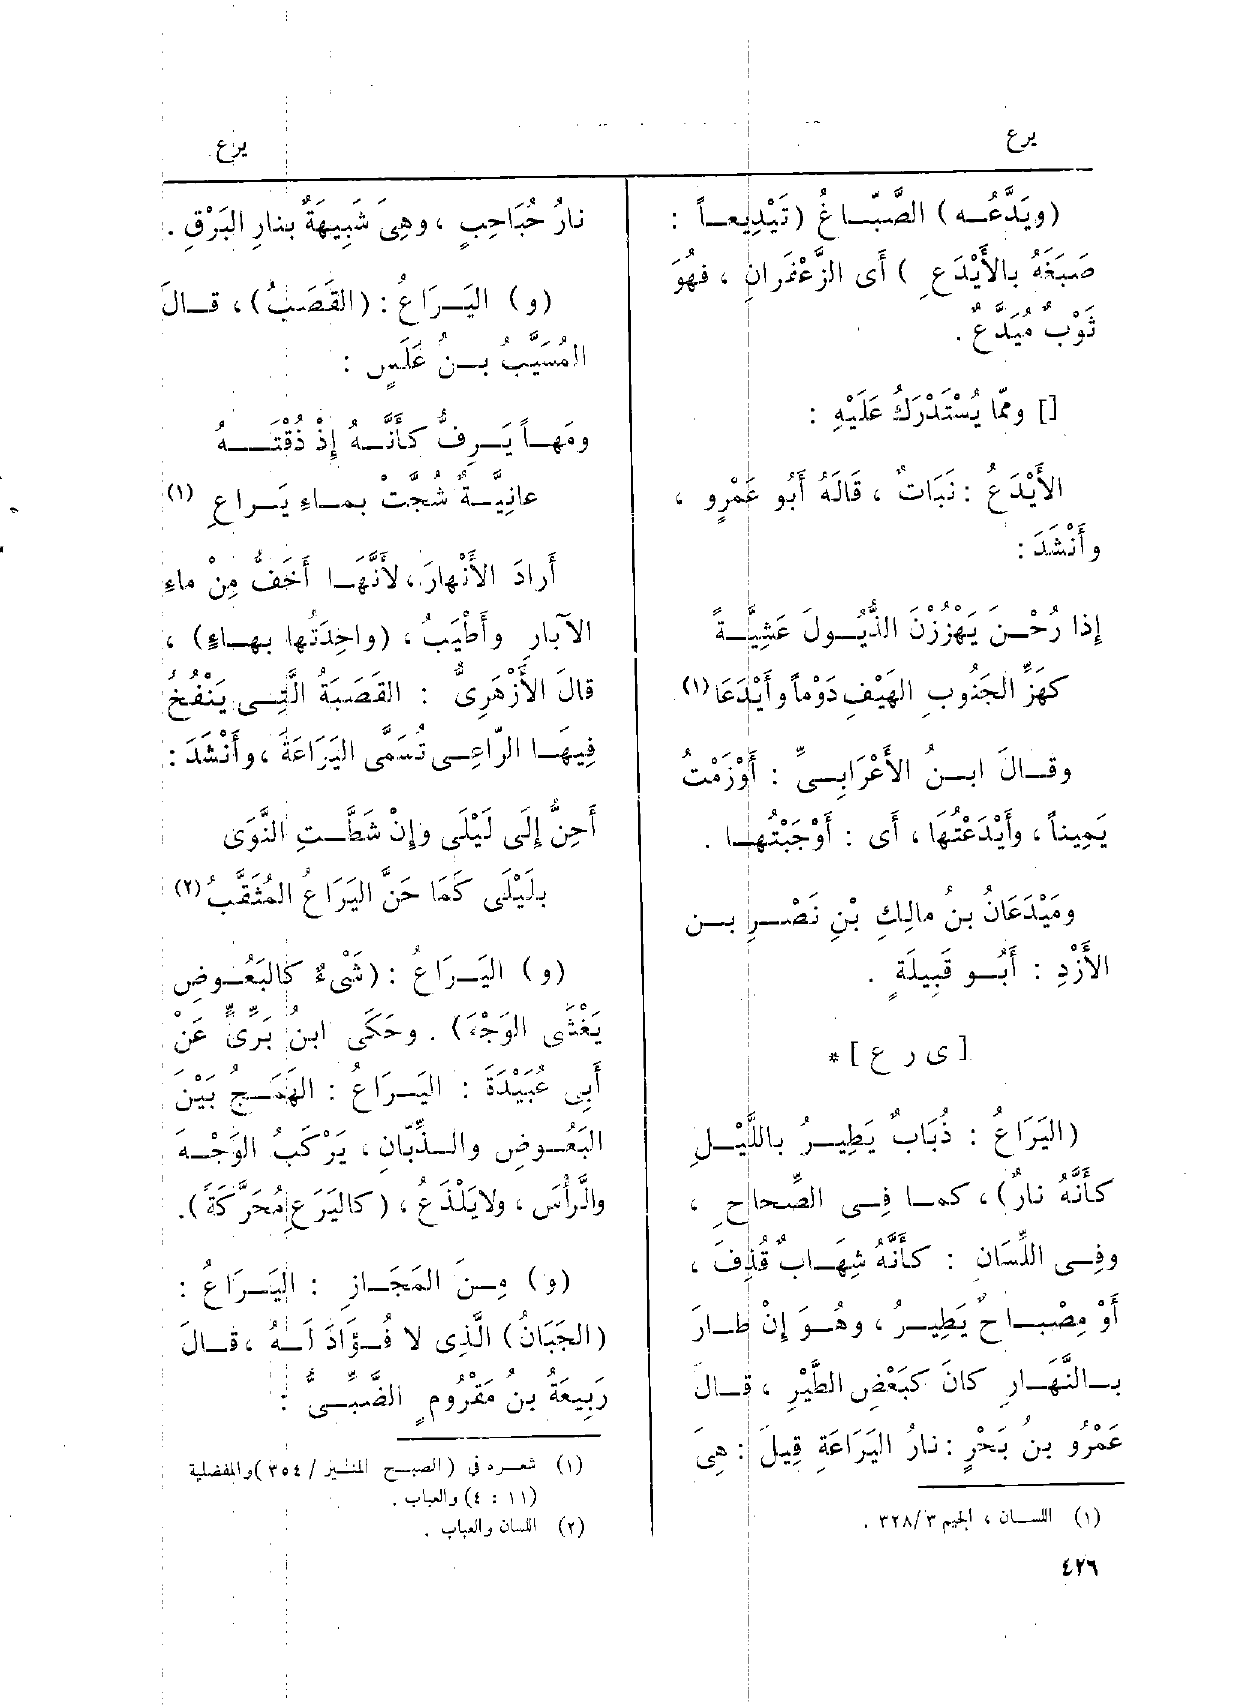 يرع
يرع
(ويَدَّعُـه) الصَّبّـاغُ (تَيْدِيعـاً :
صَبَغَهُ بالأَيْدَعِ ) أَى الزَّعْفَرانِ ، فهُوَ
ثَوْبٌ مُيَدَّعٌ .
[] وممّا يُسْتَدْرَكُ عَلَيْهِ :
الأَيْدَعُ : نَبَاتٌ ، قَالَهُ أَبُو عَمْرٍو ،
وأَنْشَدَ :
إذا رُحْـنَ يَهْزُزْنَ الذُّيُـولَ عَشِيَّـةً
كهَزِّ الجَنُوبِ الهَيْفِ دَوْماً وأَيْدَعَا (١)
وقـالَ ابـنُ الأَعْرَابِـىِّ : أَوْزَمْتُ
يَمِيناً ، وأَيْدَعْتُهَا ، أَى : أَوْجَبْتُهـا .
ومَيْدَعَانُ بنُ مالِكِ بْنِ نَصْـرِ بـن
الأَزْدِ : أَبُـو قَبِيلَةٍ .
[ ى ر ع ] *
(اليَرَاعُ : ذُبَابٌ يَطِيـرُ باللَّيْـلِ
كأَنَّهُ نارٌ) ، كمـا فِـى الصِّحاحِ ،
وفِـى اللِّسَانِ : كأَنَّهُ شِهَـابٌ قُذِفَ ،
أَوْ مِصْبـاحٌ يَطِيـرُ ، وهُـوَ إنْ طـارَ
بـالنَّهَـارِ كانَ كبَعْضِ الطَّيْرِ ، قـالَ
عَمْرُو بنُ بَحْرٍ : نارُ اليَرَاعَةِ قِيلَ : هِىَ
(١) اللسـان ، الجيم ٣٢٨/٣ .
٤٢٦
نارُ حُبَاحِبٍ ، وهِىَ شَبِيهَةٌ بنارِ البَرْقِ .
(و) اليَـرَاعُ : (القَصَبُ) ، قـالَ
المُسَيَّبُ بـنُ عَلَسٍ :
ومَهـاً يَـرِفُّ كـأَنَّـهُ إذْ ذُقْتَـــهُ
عانِيَّـةٌ شُجَّتْ بمـاءِ يَـراعِ (١)
أَرادَ الأَنْهارَ ، لأَنَّهَـا أَخَفُّ مِنْ ماءِ
الآبارِ وأَطْيَبُ ، (واحِدَتُها بهـاءٍ) ،
قالَ الأَزْهَرِىُّ : القَصَبَةُ الَّتِـى يَنْفُخُ
فِيهَـا الرّاعِـى تُسَمَّى اليَرَاعَةَ ، وأَنْشَدَ :
أَحِنُّ إلَى لَيْلَى وإنْ شَطَّـتِ النَّوَى
بلَيْلَى كَمَا حَنَّ اليَرَاعُ المُثَقَّبُ (٢)
(و) اليَـرَاعُ : (شَىْءٌ كالبَعُـوضِ
يَغْشَى الوَجْهَ) . وحَكَى ابنُ بَرِّىٍّ عَنْ
أَبِى عُبَيْدَةَ : اليَـرَاعُ : الهَمَـجُ بَيْنَ
البَعُـوضِ والـذِّبّانِ ، يَرْكَبُ الوَجْـهَ
والرَّأْسَ ، ولا يَلْذَعُ ، (كاليَرَعِ مُحَرَّكَةً) .
(و) مِـنَ المَجَـازِ : اليَـرَاعُ :
(الجَبَانُ) الَّذِى لا فُـؤَادَ لَـهُ ، قـالَ
رَبِيعَةُ بنُ مَقْرُومٍ الضَّبِّـىُّ :
(١) شعـره فى (الصبـح المنير / ٣٥٤) والمفضلية
(١١ : ٤) والعباب .
(٢) اللسان والعباب .